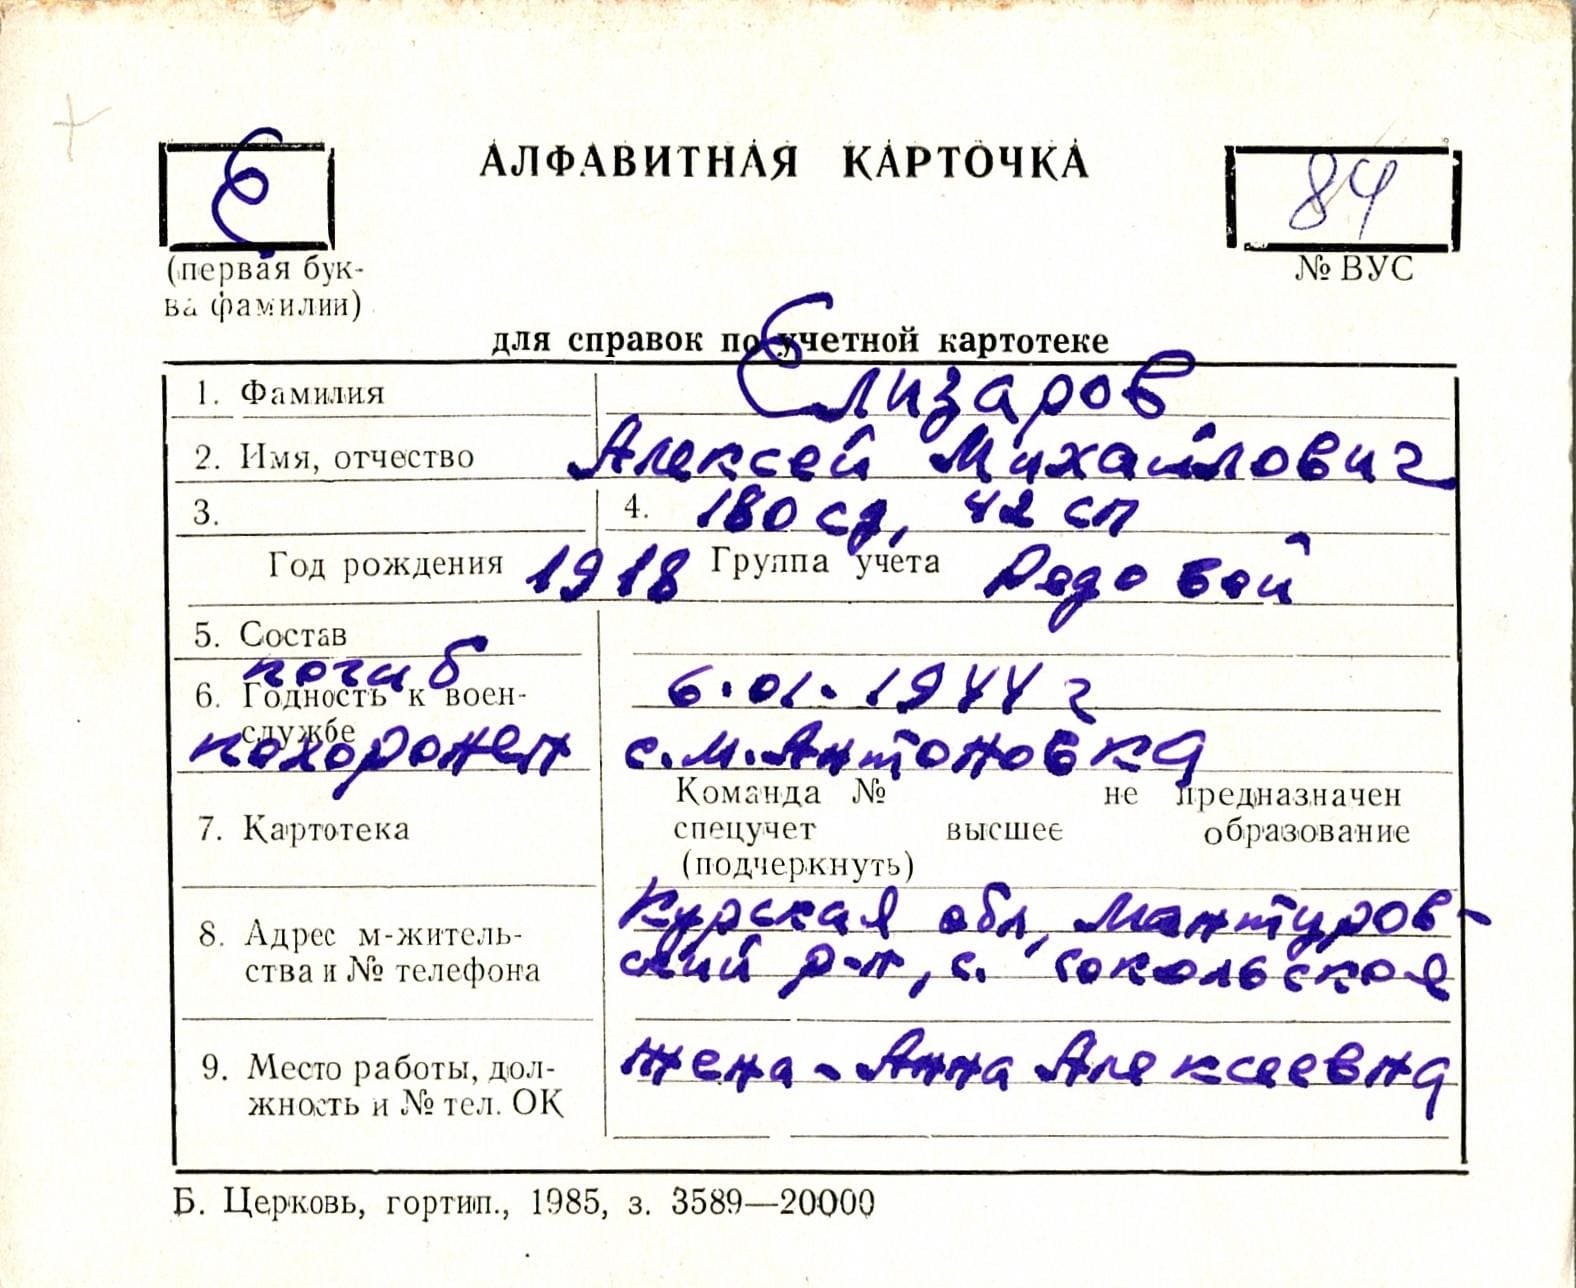 Е
АЛФАВИТНАЯ КАРТОЧКА
84
(первая бук-
ва фамилии)
№ ВУС
для справок по учетной картотеке
1. Фамилия Елизаров
2. Имя, отчество Алексей Михайлович
3. 4. 180 сд, 42 сп
Год рождения 1918 Группа учета Рядовой
5. Состав
погиб
6. Годность к воен- 6.01.1944 г
службе
похоронен с. М. Антоновка
Команда № не предназначен
7. Картотека спецучет высшее образование
(подчеркнуть)
Курская обл, Мантуров-
8. Адрес м-житель-
ства и № телефона ский р-н, с. Сокольская
9. Место работы, дол- жена - Анна Алексеевна
жность и № тел. ОК
Б. Церковь, гортип., 1985, з. 3589—20000